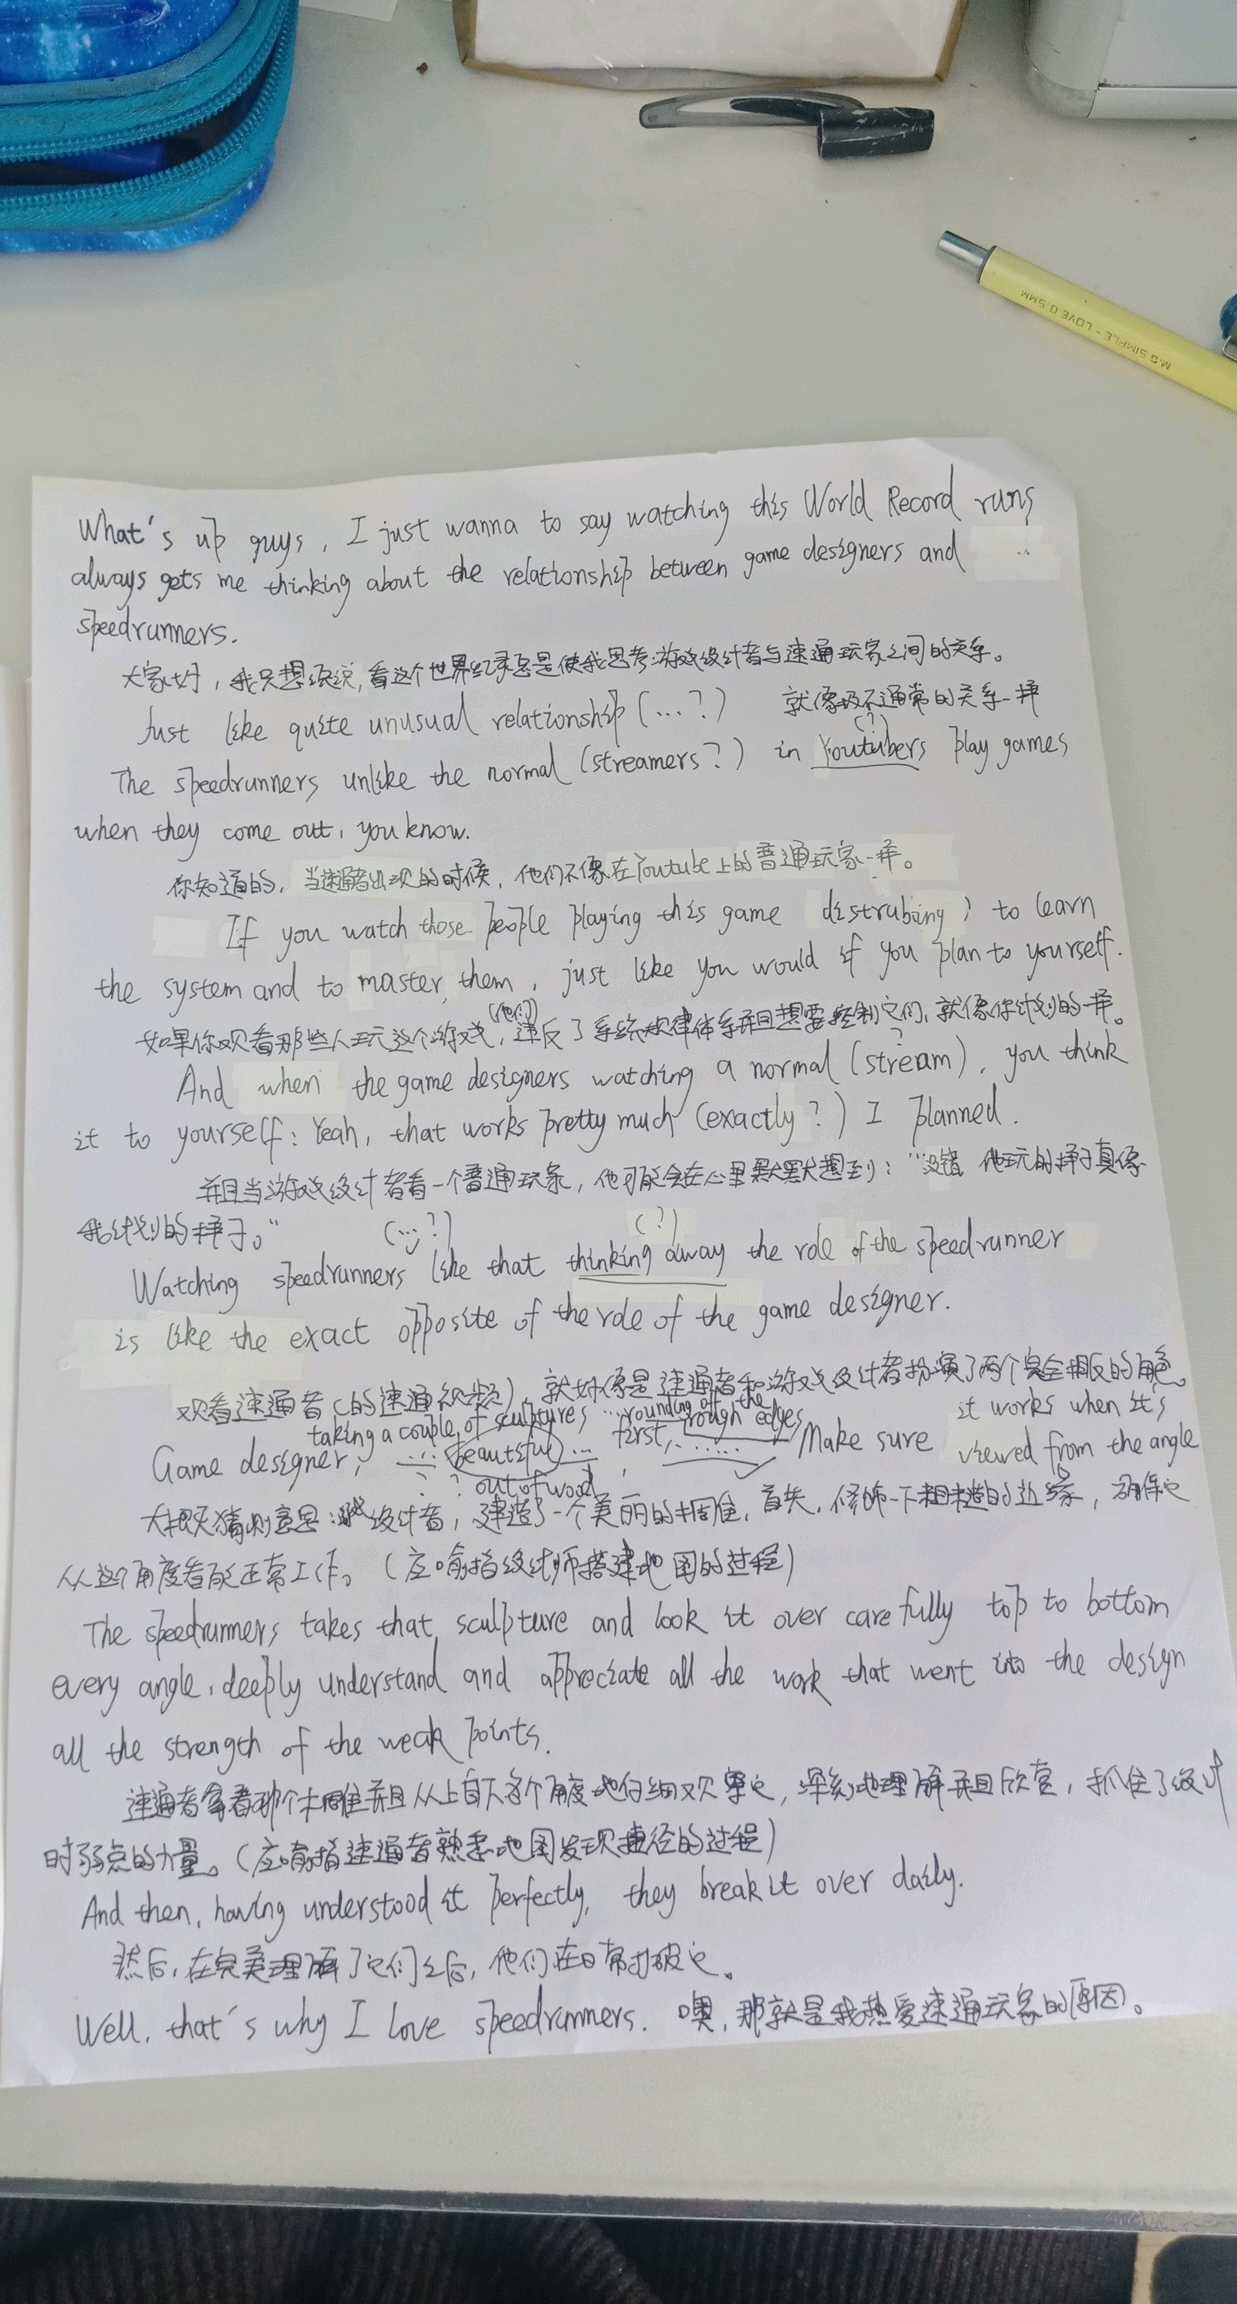 M&G SIMPLE-LOVE 0.5MM
What's up guys, I just wanna to say watching this World Record runs
always gets me thinking about the relationship between game designers and ...
speedrunners.
大家好，我只想说说，看这个世界纪录总是使我思考游戏设计者与速通玩家之间的关系。
Just like quite unusual relationship (...?) 就像极不通常的关系一样
(?)
The speedrunners unlike the normal (streamers?) in Youtubers play games
when they come out, you know.
你知道的，当速通者出现的时候，他们不像在Youtube上的普通玩家一样。
If you watch those people playing this game distrubing? to learn
the system and to master them, just like you would if you plan to yourself.
如果你观看那些人玩这个游戏，(他们)违反了系统规律体系并且想要控制它们，就像你计划的一样。
?
And when the game designers watching a normal (stream), you think
it to yourself: Yeah, that works pretty much (exactly?) I planned.
并且当游戏设计者看一个普通玩家，他可能会在心里默默想到："没错，他玩的样子真像
我计划的样子。"
(...?) (?)
Watching speedrunners like that thinking away the role of the speedrunner
is like the exact opposite of the role of the game designer.
观看速通者(的速通视频)，就好像是速通者和游戏设计者扮演了两个完全相反的角色。
taking a couple of sculptures ...rounding off the rough edges it works when it's
Game designer, ... beautiful ... first, ...... Make sure viewed from the angle
? ? out of wood
大概猜测意思:游戏设计者，建造了一个美丽的木雕，首先，修饰一下粗糙的边缘，确保它
从这个角度看能正常工作。(应喻指设计师搭建地图的过程)
The speedrunners takes that sculpture and look it over carefully top to bottom
every angle, deeply understand and appreciate all the work that went into the design
all the strength of the weak points.
速通者拿着那个木雕并且从上自下各个角度地仔细观察它，深刻地理解并且欣赏，抓住了设计
时弱点的力量。(应喻指速通者熟悉地图发现捷径的过程)
And then, having understood it perfectly, they break it over daily.
然后，在完美理解了它们之后，他们在日常打破它。
Well, that's why I love speedrunners. 噢，那就是我热爱速通玩家的原因。